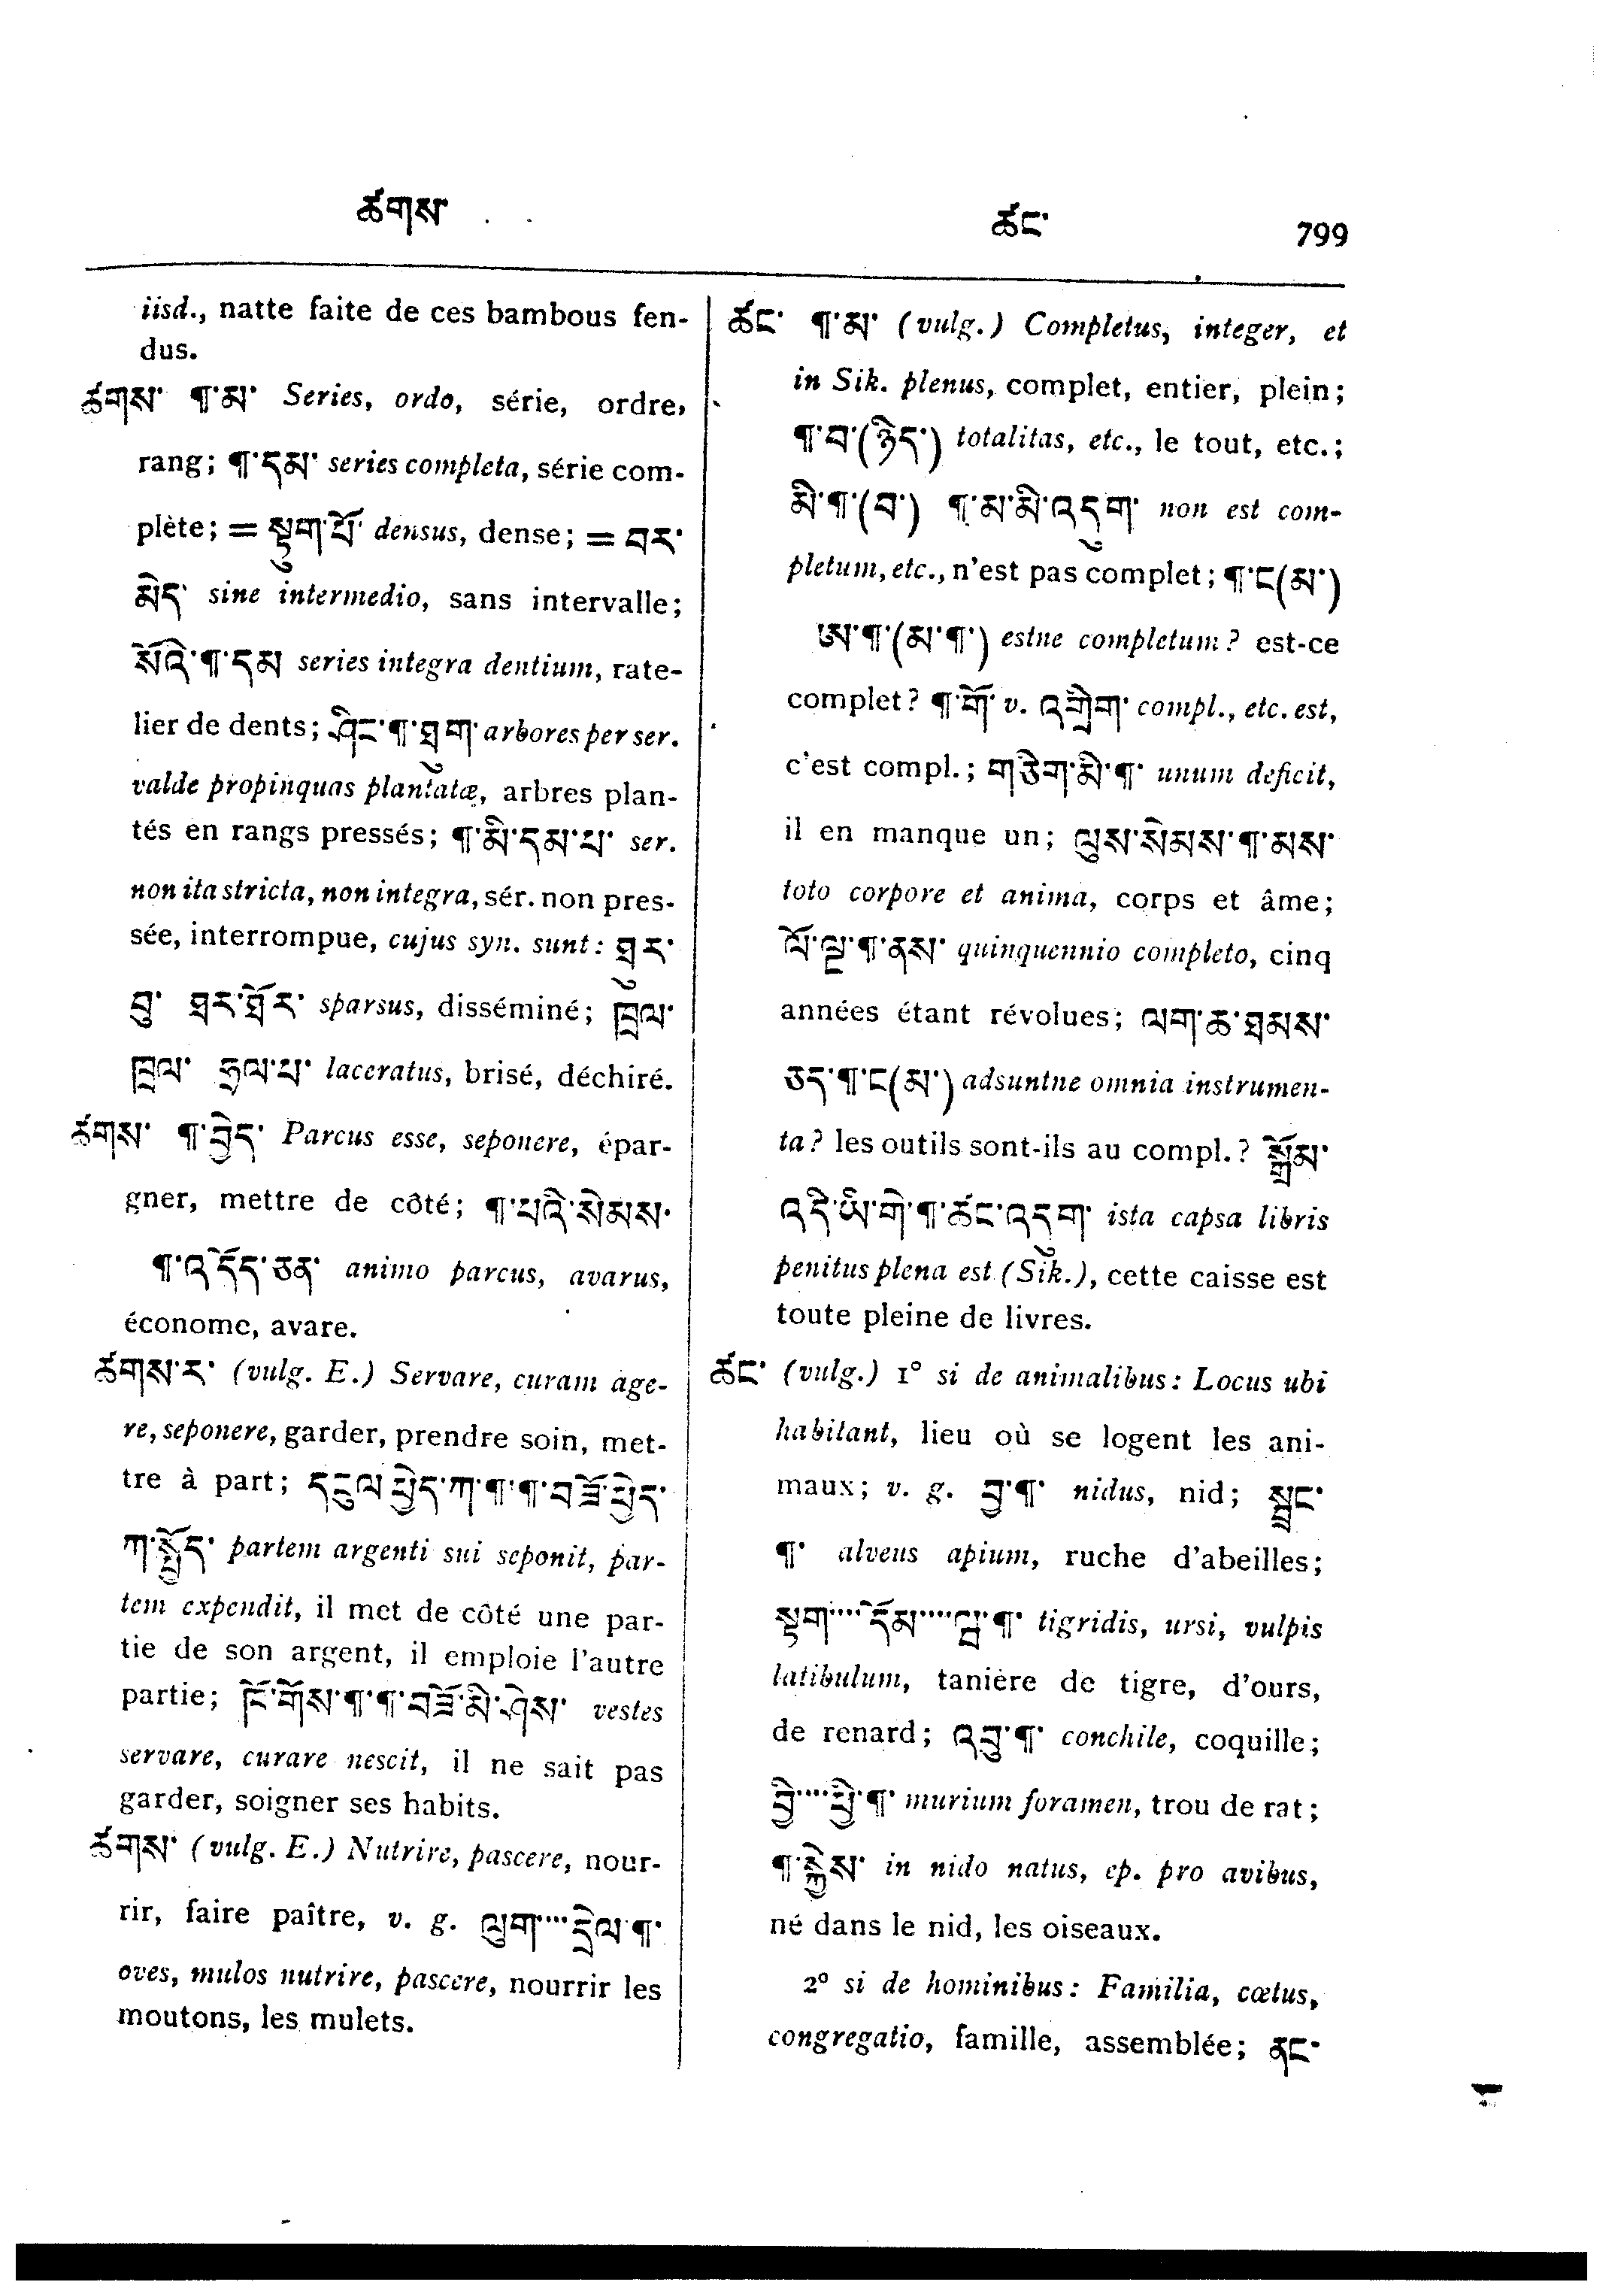 ཚགས་
ཚང་ 799
iisd., natte faite de ces bambous fen-
dus.
ཚགས་ ¶་མ་ Series, ordo, série, ordre,
rang; ¶་དམ་ series completa, série com-
plète; = སྟུག་པོ་ densus, dense; = བར་
མེད་ sine intermedio, sans intervalle;
སོའི་¶་དམ series integra dentium, rate-
lier de dents; ཤིང་¶་ཐུག་ arbores per ser.
valde propinquas plantatæ, arbres plan-
tés en rangs pressés; ¶་མི་དམ་པ་ ser.
non ita stricta, non integra, sér. non pres-
sée, interrompue, cujus syn. sunt: ཐུར་
བུ་ ཐར་ཐོར་ sparsus, disséminé; ཁྲོལ་
ཁྲལ་ ཧྲལ་པ་ laceratus, brisé, déchiré.
ཚགས་ ¶་བྱེད་ Parcus esse, seponere, épar-
gner, mettre de côté; ¶་པའི་སེམས་
¶་འདོད་ཅན་ animo parcus, avarus,
économe, avare.
ཚགས་ར་ (vulg. E.) Servare, curam age-
re, seponere, garder, prendre soin, met-
tre à part; དངུལ་ཕྱེད་ཀ་¶་¶་བཟོ་ཕྱེད་
ཀ་སྤྱོད་ partem argenti sui seponit, par-
tem expendit, il met de côté une par-
tie de son argent, il emploie l'autre
partie; ངོ་གོས་¶་¶་བཟོ་མི་ཤེས་ vestes
servare, curare nescit, il ne sait pas
garder, soigner ses habits.
ཚགས་ (vulg. E.) Nutrire, pascere, nour-
rir, faire paître, v. g. ལུག་····དྲེལ་¶་
oves, mulos nutrire, pascere, nourrir les
moutons, les mulets.
ཚང་ ¶་མ་ (vulg.) Completus, integer, et
in Sik. plenus, complet, entier, plein;
¶་བ་(ཉིད་) totalitas, etc., le tout, etc.;
མི་¶་(བ་) ¶་མ་མི་འདུག་ non est com-
pletum, etc., n'est pas complet; ¶་ང(མ་)
ཨ་¶་(མ་¶་) estne completum? est-ce
complet? ¶་གོ་ v. འགྲིག་ compl., etc. est,
c'est compl.; གཅིག་མི་¶་ unum deficit,
il en manque un; ལུས་སེམས་¶་མས་
toto corpore et anima, corps et âme;
ལོ་ལྔ་¶་ནས་ quinquennio completo, cinq
années étant révolues; ལག་ཆ་ཐམས་
ཅད་¶་ང(མ་) adsuntne omnia instrumen-
ta? les outils sont-ils au compl.? སྒྲོམ་
འདི་ཡི་གེ་¶་ཚང་འདུག་ ista capsa libris
penitus plena est (Sik.), cette caisse est
toute pleine de livres.
ཚང་ (vulg.) 1° si de animalibus: Locus ubi
habitant, lieu où se logent les ani-
maux; v. g. བྱ་¶་ nidus, nid; སྦྲང་
¶་ alveus apium, ruche d'abeilles;
སྟག་····དོམ་····ཝ་¶་ tigridis, ursi, vulpis
latibulum, tanière de tigre, d'ours,
de renard; འབུ་¶་ conchile, coquille;
བྱི་····ཕྱི་¶་ murium foramen, trou de rat;
¶་སྐྱེས་ in nido natus, ep. pro avibus,
né dans le nid, les oiseaux.
2° si de hominibus: Familia, cœtus,
congregatio, famille, assemblée; ནང་